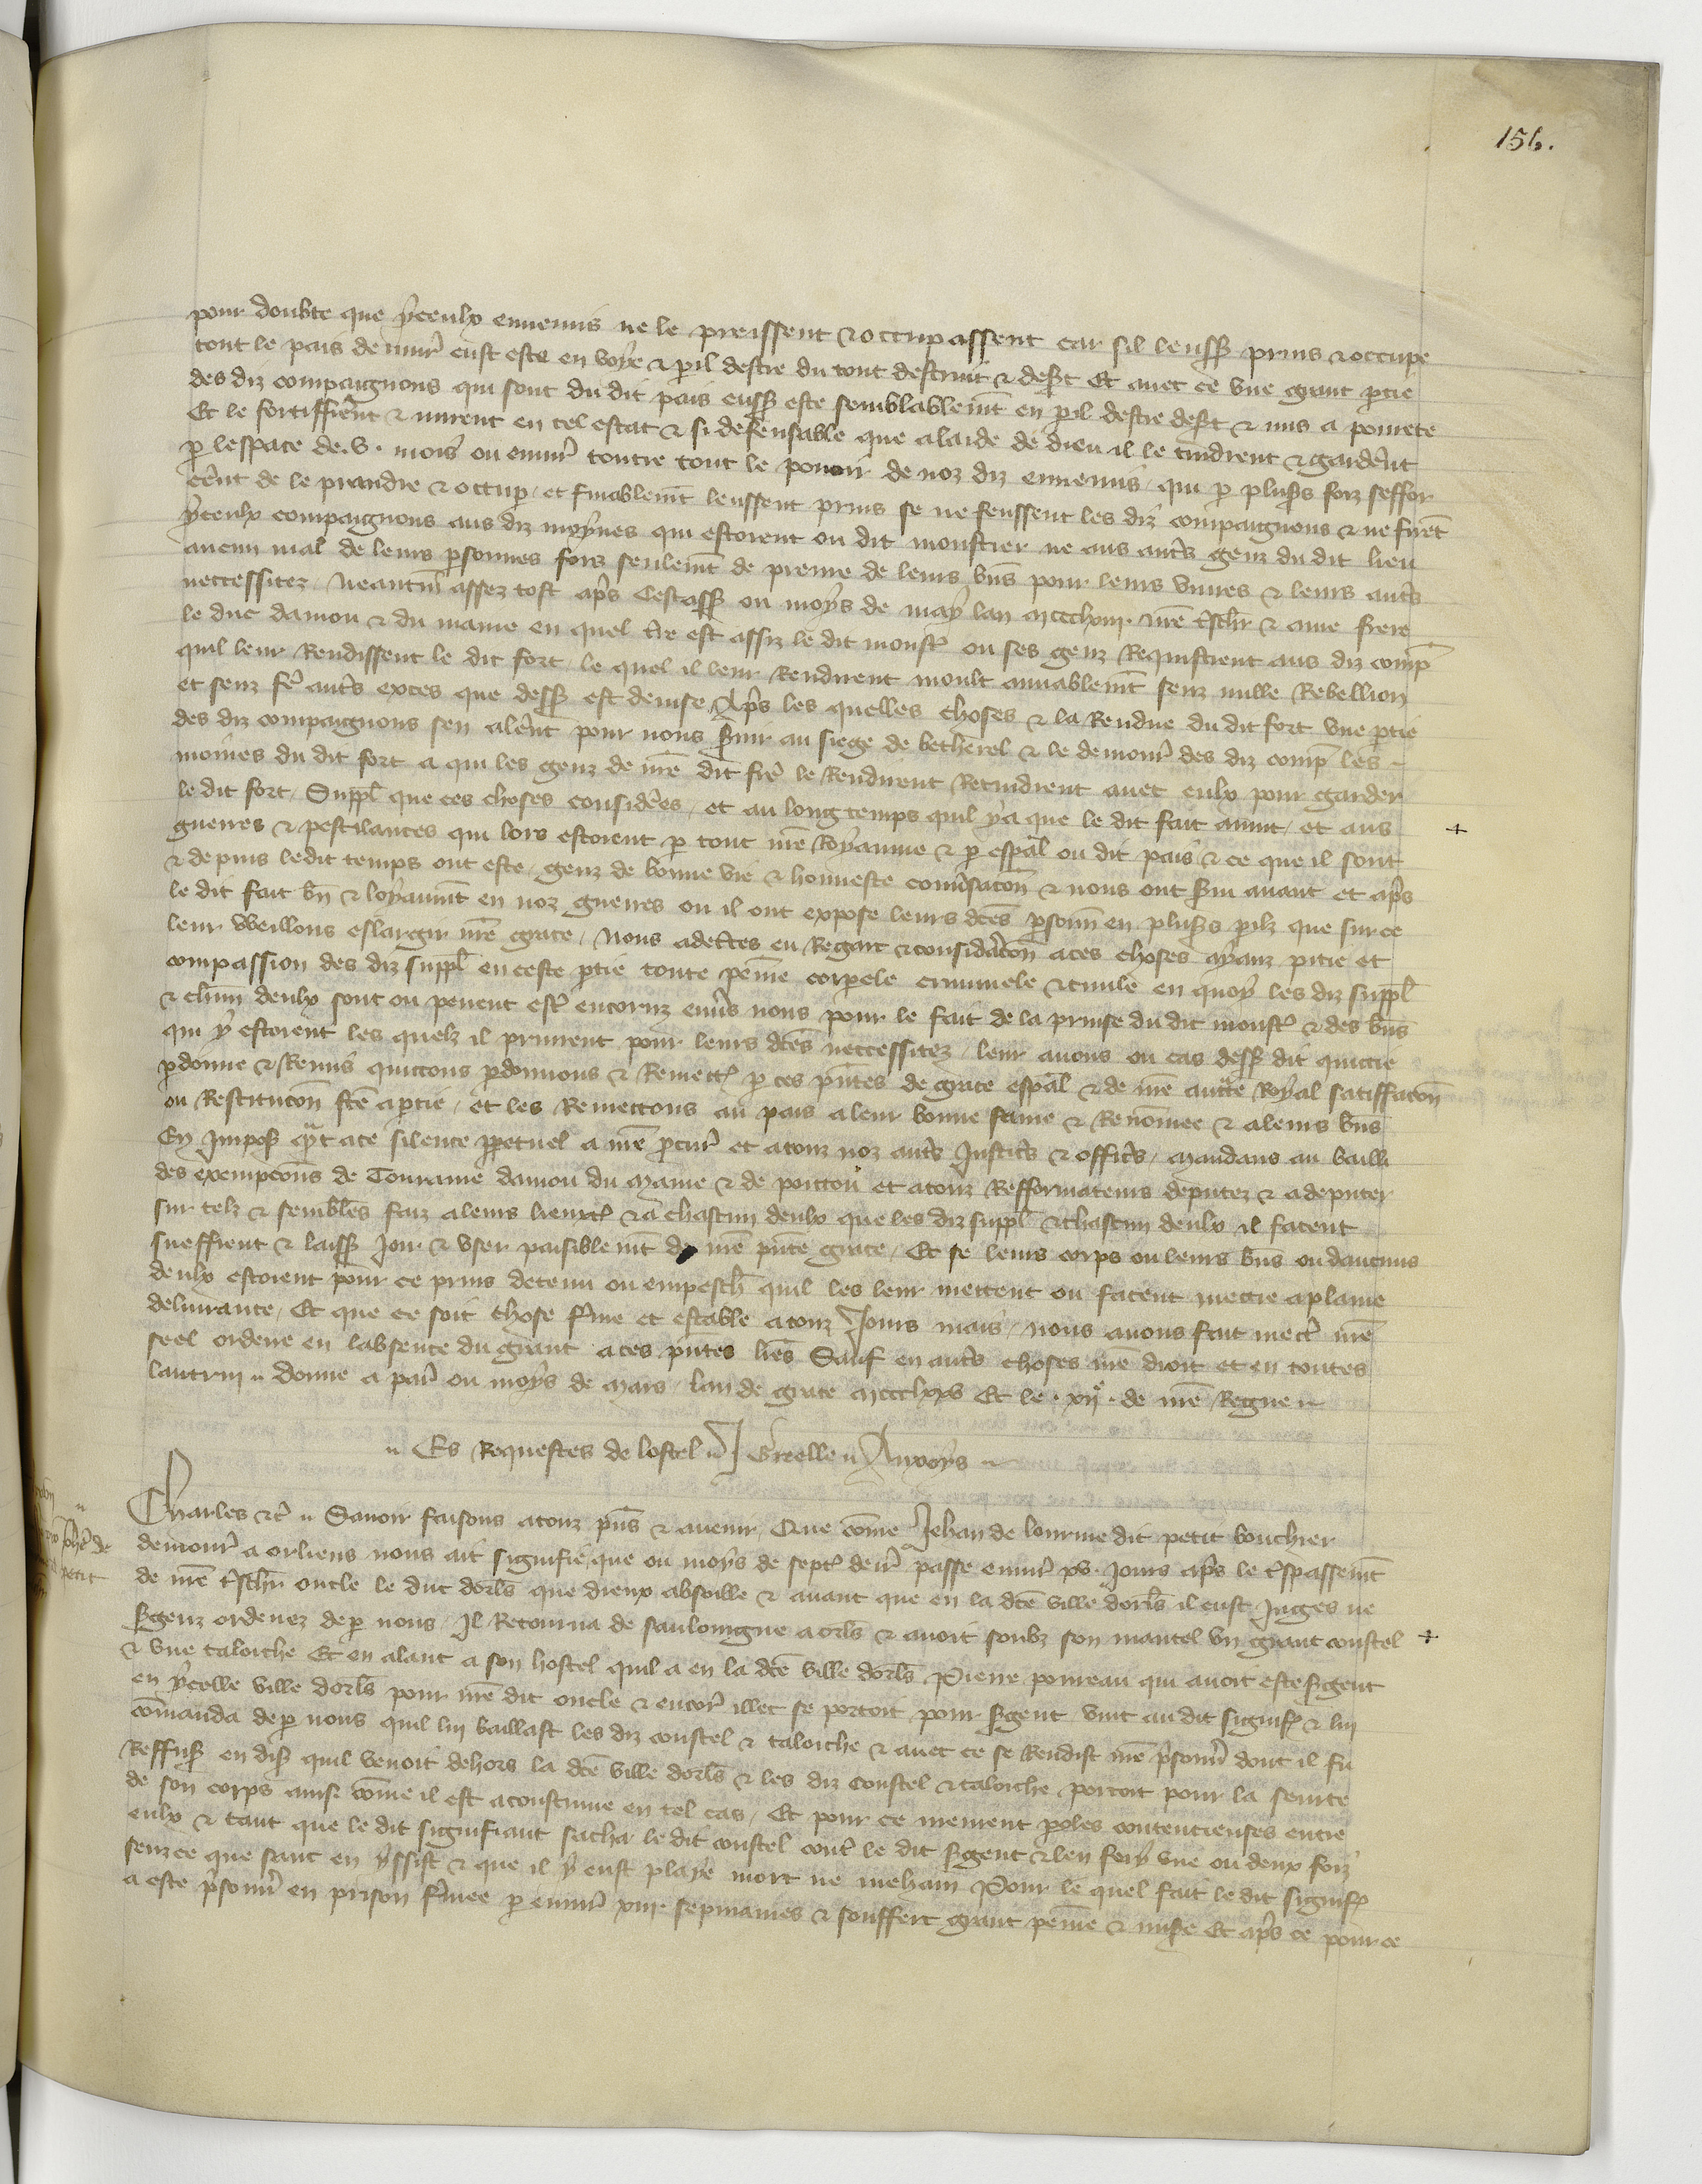 156.
pour doubte que yceulx ennemis ne le preissent & occupassent car sil leuss prins & occupe
tout le pais denuir̃ eust este en voye & ꝑil destre du tout destruit & desert Et auec ce vne grant ꝑtie
des diz compaignons qui sont du dit pais euss este semblablemt̃ en ꝑil destre desert & mis a pourete
Et le fortiffier̃nt & mirent en tel estat & si defensable que alaide de dieu il le tindrent & garder̃nt
ꝑ lespace de .v. mois ou enuir̃ contre tout le pouoir de noz diz ennemis, qui ꝑ pluss foiz seffor
cer̃nt de le prandre & occup̃ et finablemt̃ leussent prins se ne feussent les diz compaignons & ne firẽt
yceulx compaignons aus diz moynes qui estoient ou dit moustier ne aus autr̃s genz du dit lieu
aucun mal de leurs ꝑsonnes fors seulemt̃ de prenre de leurs bñs pour leurs viures & leurs autr̃s
neccessitez, Neantm̃ assez tost apr̃s Cestass ou moys de may lan mccclxiii. nr̃e tr̃schr̃ & ame frere
le duc danjou & du maine en quel tr̃e est assiz le dit monst̃ ou ses genz Requistrent aus diz comp̃
quil leur Rendissent le dit fort, le quel il leur Rendirent moult amiablemt̃ senz nulle Rebellion
et senz fẽ autr̃s exces que dess est deuise, Apr̃s les quelles choses & la Rendue du dit fort vne ꝑtie
des diz compaignons sen aler̃nt pour nous ſuir au siege de betherel & le demour̃ des diz comp̃ les
moines du dit fort a qui les genz de nr̃e dit frẽ le Rendirent Retindrent auec eulx pour garder
le dit fort, Suppl̃ que ces choses consider̃es, et au long temps quil ya que le dit fait auint, et aus
guerres & pestilances qui lors estoient ꝑ tout nr̃e Royaume & ꝑ esp̃al ou dit pais & ce que il sont
& depuis ledit temps ont este, genz de bonne vie & honneste conuersacõn & nous ont ſui auant et apr̃s
le dit fait bñ & loyaumt̃ en noz guerres ou il ont expose leurs dc̃es ꝑsonñ en pluss ꝑilz que sur ce
leur Veillons eslargir nr̃e grace, Nous adecertes eu Regart & consideracõn aces choses ayanz pitie et
compassion des diz suppl̃ en ceste ꝑtie toute peinne corporele criminele & ciuile en quoy les diz suppl̃
& chũn deulx sont ou peuent est̃ encoruz enuers nous pour le fait de la prinse du dit monst̃ & des bñs
qui y estoient les quelz il prinrent pour leurs dc̃es neccessitez, leur auons ou cas dess dit quictie
ꝑdonne & Remis quictons ꝑdonnons & Remect̃ ꝑ ces pñtes de grace esp̃al & de nr̃e auctte Royal satiffacõn
ou Restitucõn fc̃e a ꝑtie, et les Remectons au pais a leur bonne fame & Renõmee & a leurs bñs
En Impos q̃nt ace silence ꝑpetuel a nr̃e ꝓcur̃ et atouz noz autr̃s Justic̃s & offic̃s, mandans au bailli
des exempcõns de Touraine danjou du Maine & de poictou et atouz Refformateurs deputez & adeputer
sur telz & sembl̃es faiz a leurs lieuxt̃ & a chascun deulx que les diz suppl̃ & chascun deulx il facent
sueffrent & laiss Joir & vser paisiblemt̃ de nr̃e pñte grace, Et se leurs corps ou leurs bñs ou daucuns
deulx estoient pour ce prins detenu ou empesch̃ quil les leur mettent ou facent mectre aplaine
deliurance, Et que ce soit chose ferme et estable atouz Jours mais, Nous auons fait mectr̃ nr̃e
seel ordene en labsence du grant aces pñtes lr̃es Sauf en autr̃s choses nr̃e droit et en toutes
lautrui, donne a par̃ ou moys de mars, lan de grace mccclxxv Et le .xiie. de nr̃e Regne
Es Requestes de lostel J Grelle Anxoys
Charles &c̃ Sauoir faisons atouz pñs & auenir, Que cõme Jehan de lourme dit petit bouchier
demour̃ a orliens nous ait signifie, que ou moys de sept̃ derr̃ passe enuir̃ xv. Jours apr̃s le tr̃spassemt̃
de nr̃e tr̃schr̃ oncle le duc dorl̃s que dieux absoille & auant que en la dc̃e ville dorl̃s il eust Juges ne
ſgenz ordenez de ꝑ nous, Il Retourna de sauloingne a orl̃s & auoit soubz son mantel vn grant coustel
& vne taloiche Et en alant a son hostel quil a en la dc̃e ville dorl̃s Pierre poureau qui auoit este ſgent
en ycelle ville dorl̃s pour nr̃e dit oncle & encor̃ illec se portoit pour ſgent vint au dit signif̃ & lui
cõmanda de ꝑ nous quil lui baillast les diz coustel & taloiche & auec ce se Rendist nr̃e p̃sonñ dont il fu
Reffus en dis quil venoit dehors la dc̃e ville dorl̃s & les diz coustel & taloiche portoit pour la seurte
de son corps ainsi cõme il est acoustume en tel cas, Et pour ce meurent ꝑoles contencieuses entre
eulx & tant que le dit signifiant sacha le dit coustel contr̃ le dit ſgent & len fery vne ou deux foiz
senz ce que sanc en yssist & que il y eust playe mort ne mehain Pour le quel fait le dit signif̃
a este p̃sonñ en prison fermee ꝑ enuir̃ xiii. sepmaines & souffert grant peinne & misere Et apr̃s ce pour ce